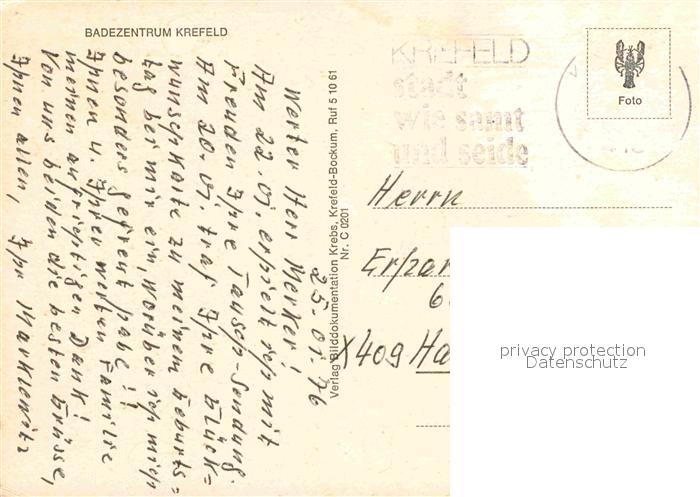 BADEZENTRUM KREFELD
25.01.76
Werter Herr Merker!
Am 22.01. erhielt ich mit
Freuden Ihre Tausch-Sendung.
Am 20.01. traf Ihre Glück=
wunschkarte zu meinem Geburts=
tag bei mir ein, worüber ich mich
besonders gefreut habe!!
Ihnen u. Ihrer werten Familie
meinen aufrichtigen Dank!
Von uns beiden die besten Grüsse,
Ihnen allen, Ihr Marklewitz
Verlag Bilddokumentation Krebs, Krefeld-Bockum, Ruf 5 10 61
Nr. C 0201
KREFELD
stadt
wie samt
und seide
Foto
Herrn
X409 Ha
privacy protection
Datenschutz